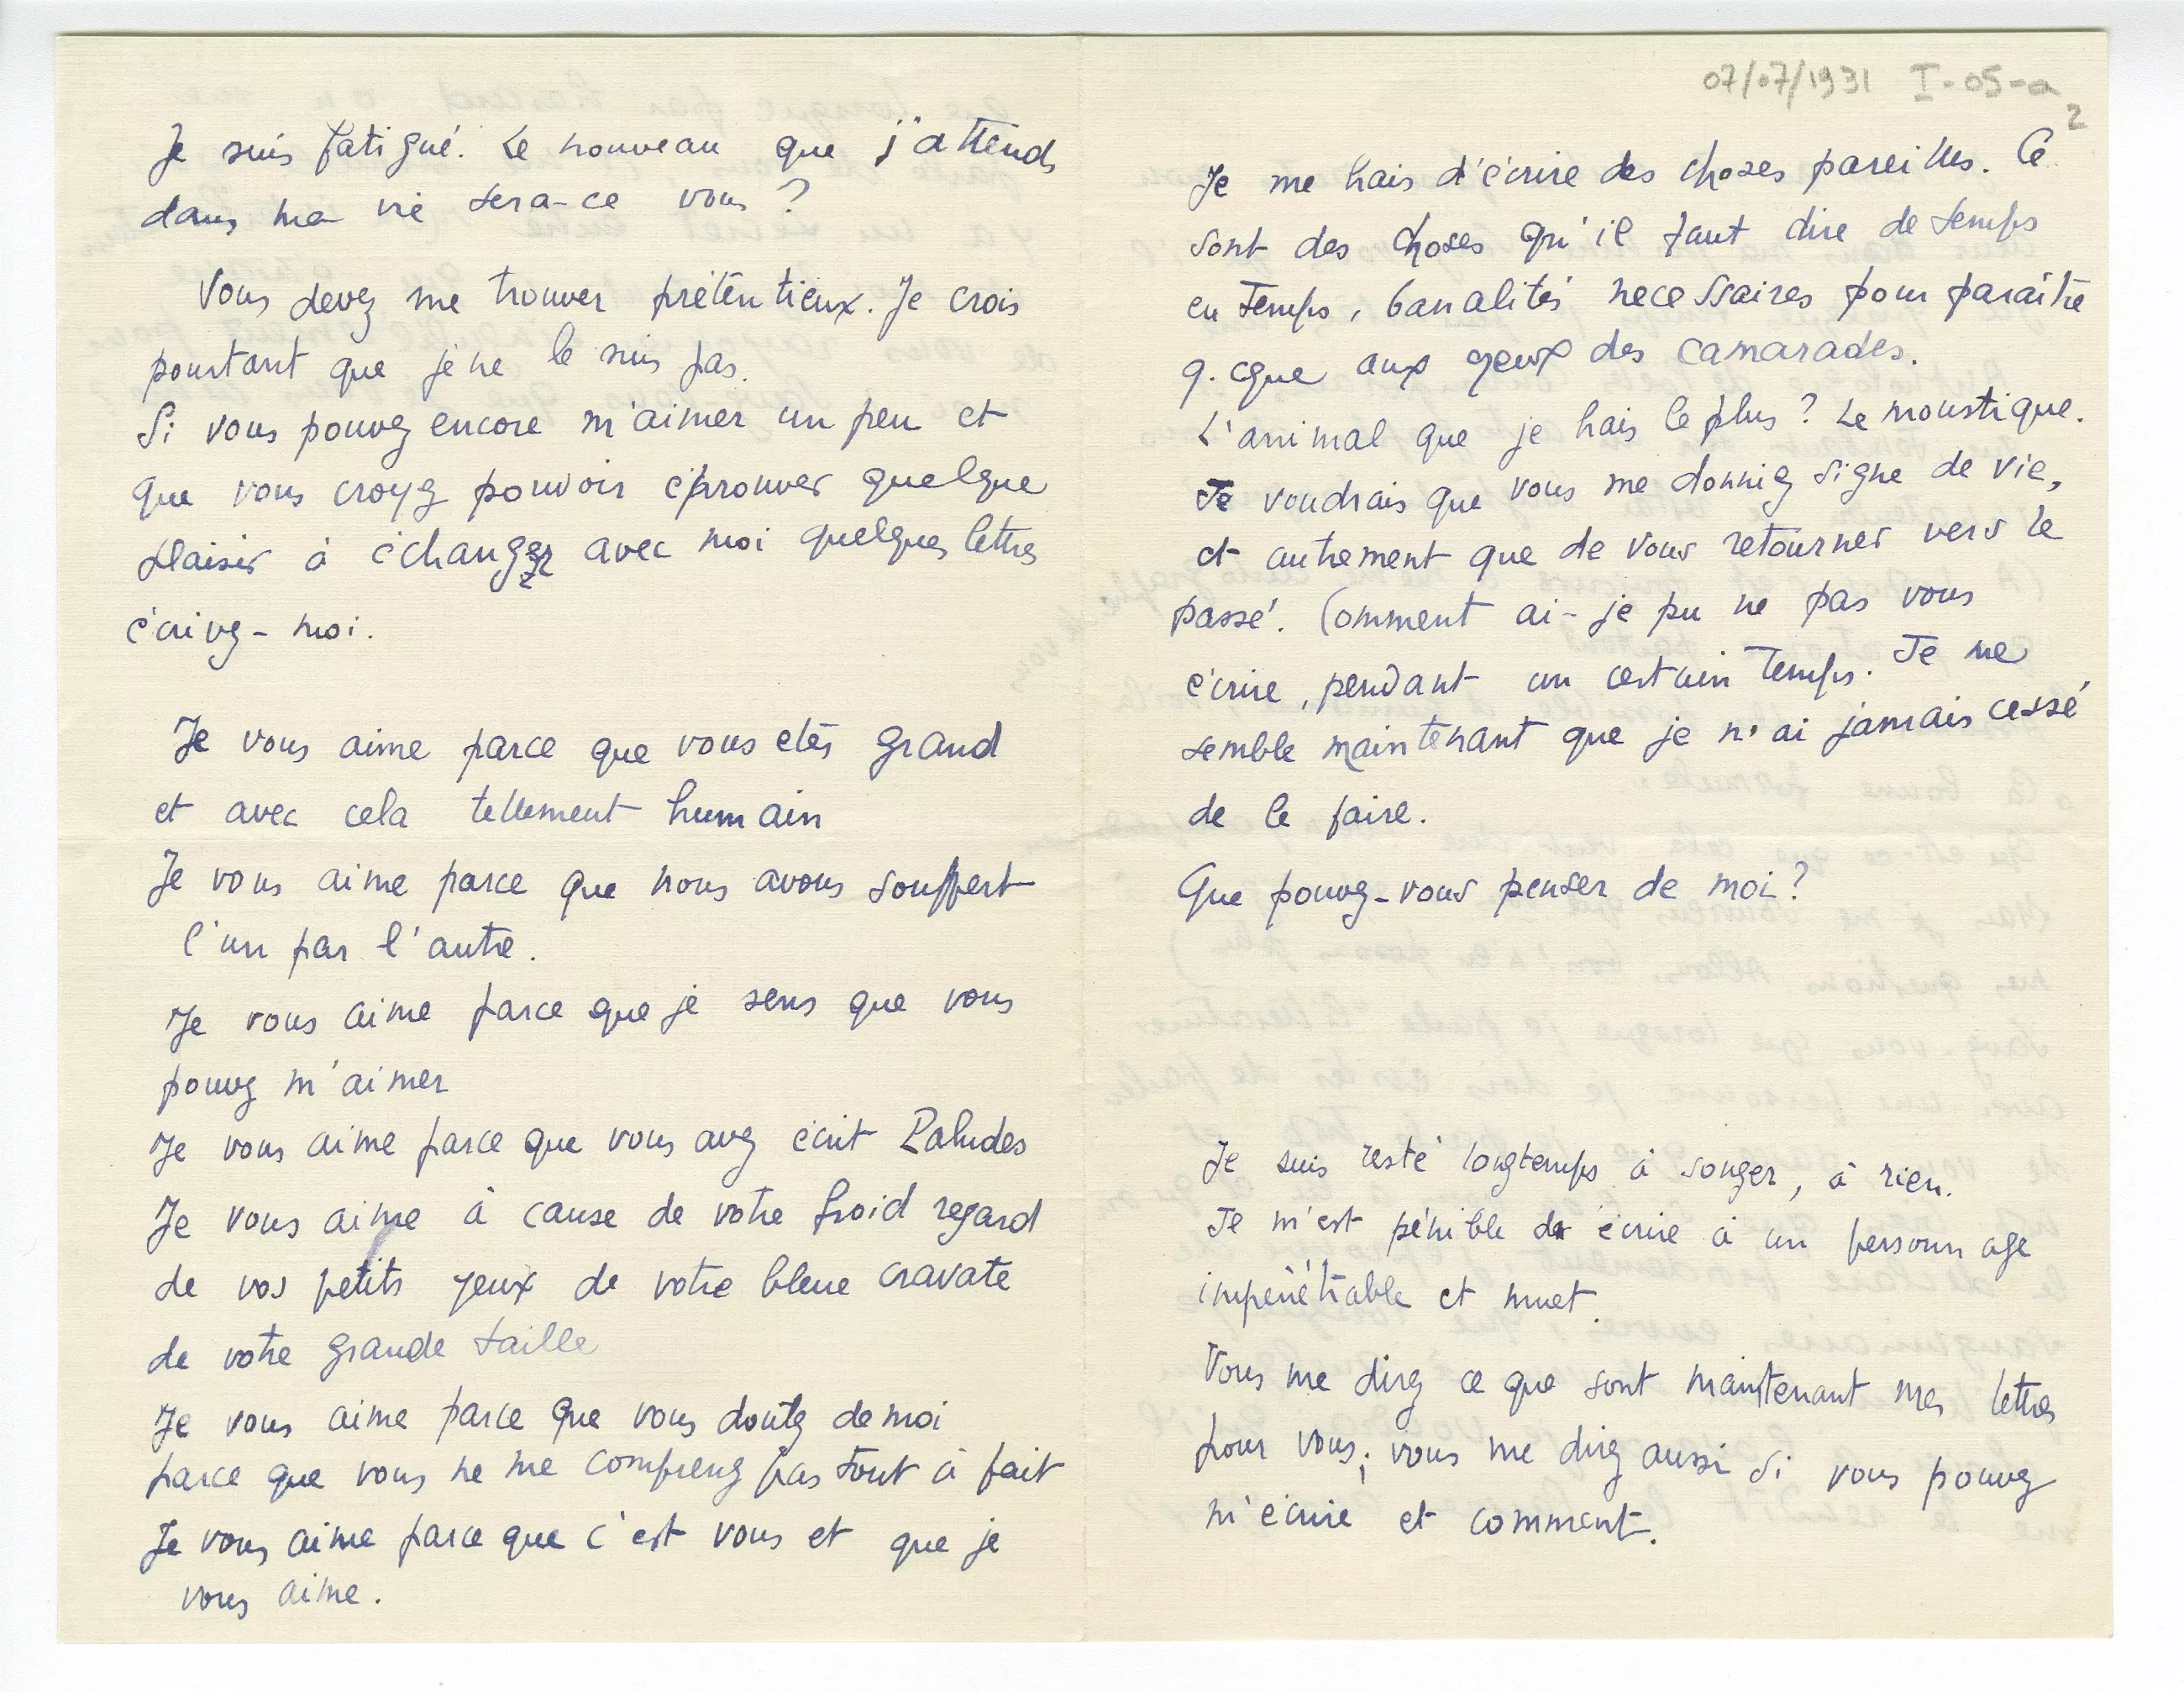 Je suis fatigué. Le nouveau que j'attends
dans ma vie sera-ce vous ?
Vous devez me trouver prétentieux. Je crois
pourtant que je ne le suis pas.
Si vous pouvez encore m'aimer un peu et
que vous croyez pouvoir éprouver quelque
plaisir à échanger avec moi quelques lettres
écrivez-moi.
Je vous aime parce que vous etes grand
et avec cela tellement humain
Je vous aime parce que nous avons souffert
l'un par l'autre.
Je vous aime parce que je sens que vous
pouvez m'aimer
Je vous aime parce que vous avez écrit Paludes
Je vous aime à cause de votre froid regard
de vos petits yeux de votre bleue cravate
de votre grande taille
Je vous aime parce que vous doutez de moi
parce que vous ne me comprenez pas tout à fait
Je vous aime parce que c'est vous et que je
vous aime.
07/07/1931 I-05-a
2
Je me hais d'écrire des choses pareilles. Ce
sont des choses qu'il faut dire de temps
en temps, banalités necessaires pour paraître
q.cque aux yeux des camarades.
L'animal que je hais le plus ? Le moustique.
Je voudrais que vous me donniez signe de vie,
et autrement que de vous retourner vers le
passé. Comment ai-je pu ne pas vous
écrire, pendant un certain temps. Je me
semble maintenant que je n'ai jamais cessé
de le faire.
Que pouvez-vous penser de moi ?
Je suis resté longtemps à songer, à rien.
Je m'est pénible de écrire à un personnage
impénétrable et muet.
Vous me direz ce que sont maintenant mes lettres
pour vous ; vous me direz aussi si vous pouvez
m'écrire et comment.